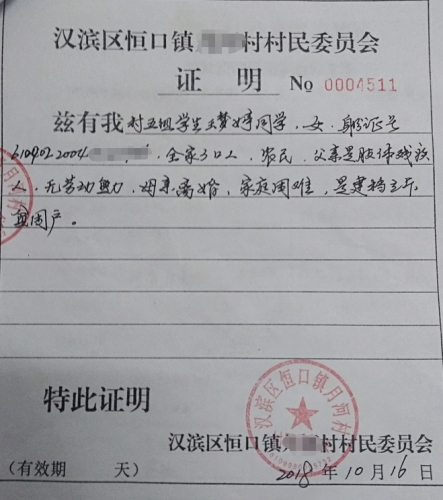 汉滨区恒口镇 村村民委员会
证 明 No 0004511
兹有我村五组学生王梦婷同学,女,身份证号
2004 ,全家3口人,农民,父亲是肢体残疾
人,无劳动能力,母亲离婚,家庭困难,是建档立卡
贫困户。
特此证明
汉滨区恒口镇月河村
汉滨区恒口镇 村村民委员会
(有效期 天) 2018年10月16日